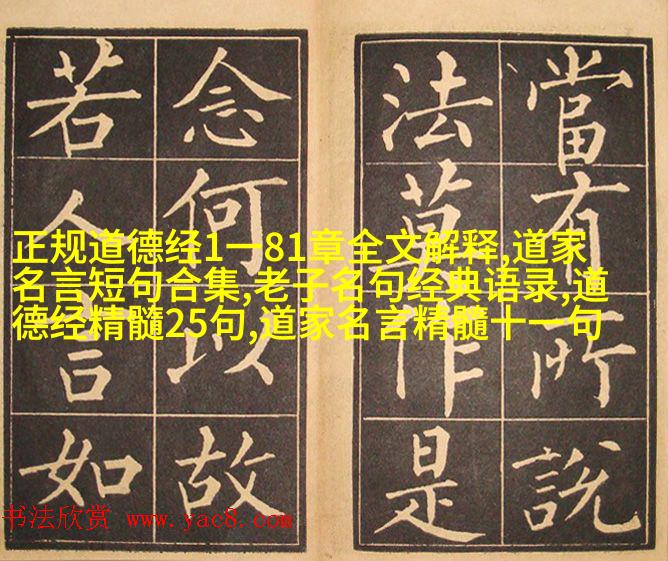 當有所說
法莫作是
念何以故
若人言如
正规道德经1一81章全文解释,道家
名言短句合集,老子名句经典语录,道
德经精髓25句,道家名言精髓十一句
书法欣赏 www.yac8.com